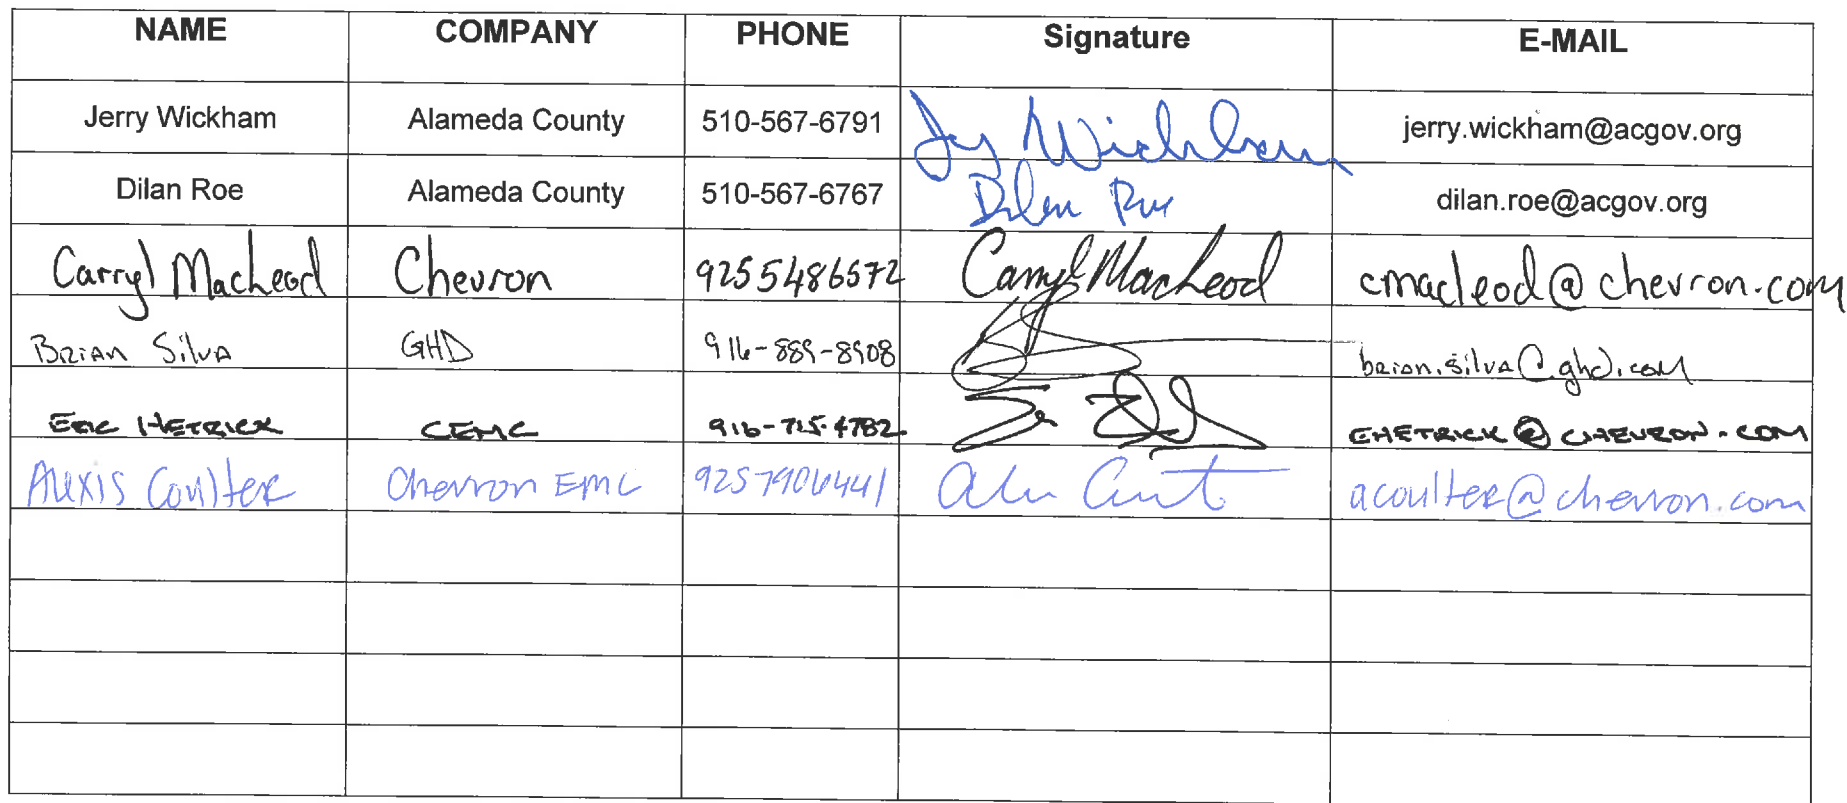 NAME COMPANY PHONE Signature E-MAIL
Jerry Wickham Alameda County 510-567-6791 Jy Wickham jerry.wickham@acgov.org
Dilan Roe Alameda County 510-567-6767 Dilan Roe dilan.roe@acgov.org
Carryl MacLeod Chevron 9255486572 Carryl MacLeod cmacleod@chevron.com
Brian Silva GHD 916-889-8908 brian.silva@ghd.com
Eric Hetrick CEMC 916-715-4782 EHETRICK@CHEVRON.COM
Alexis Coulter Chevron EMC 9257906441 acoulter@chevron.com